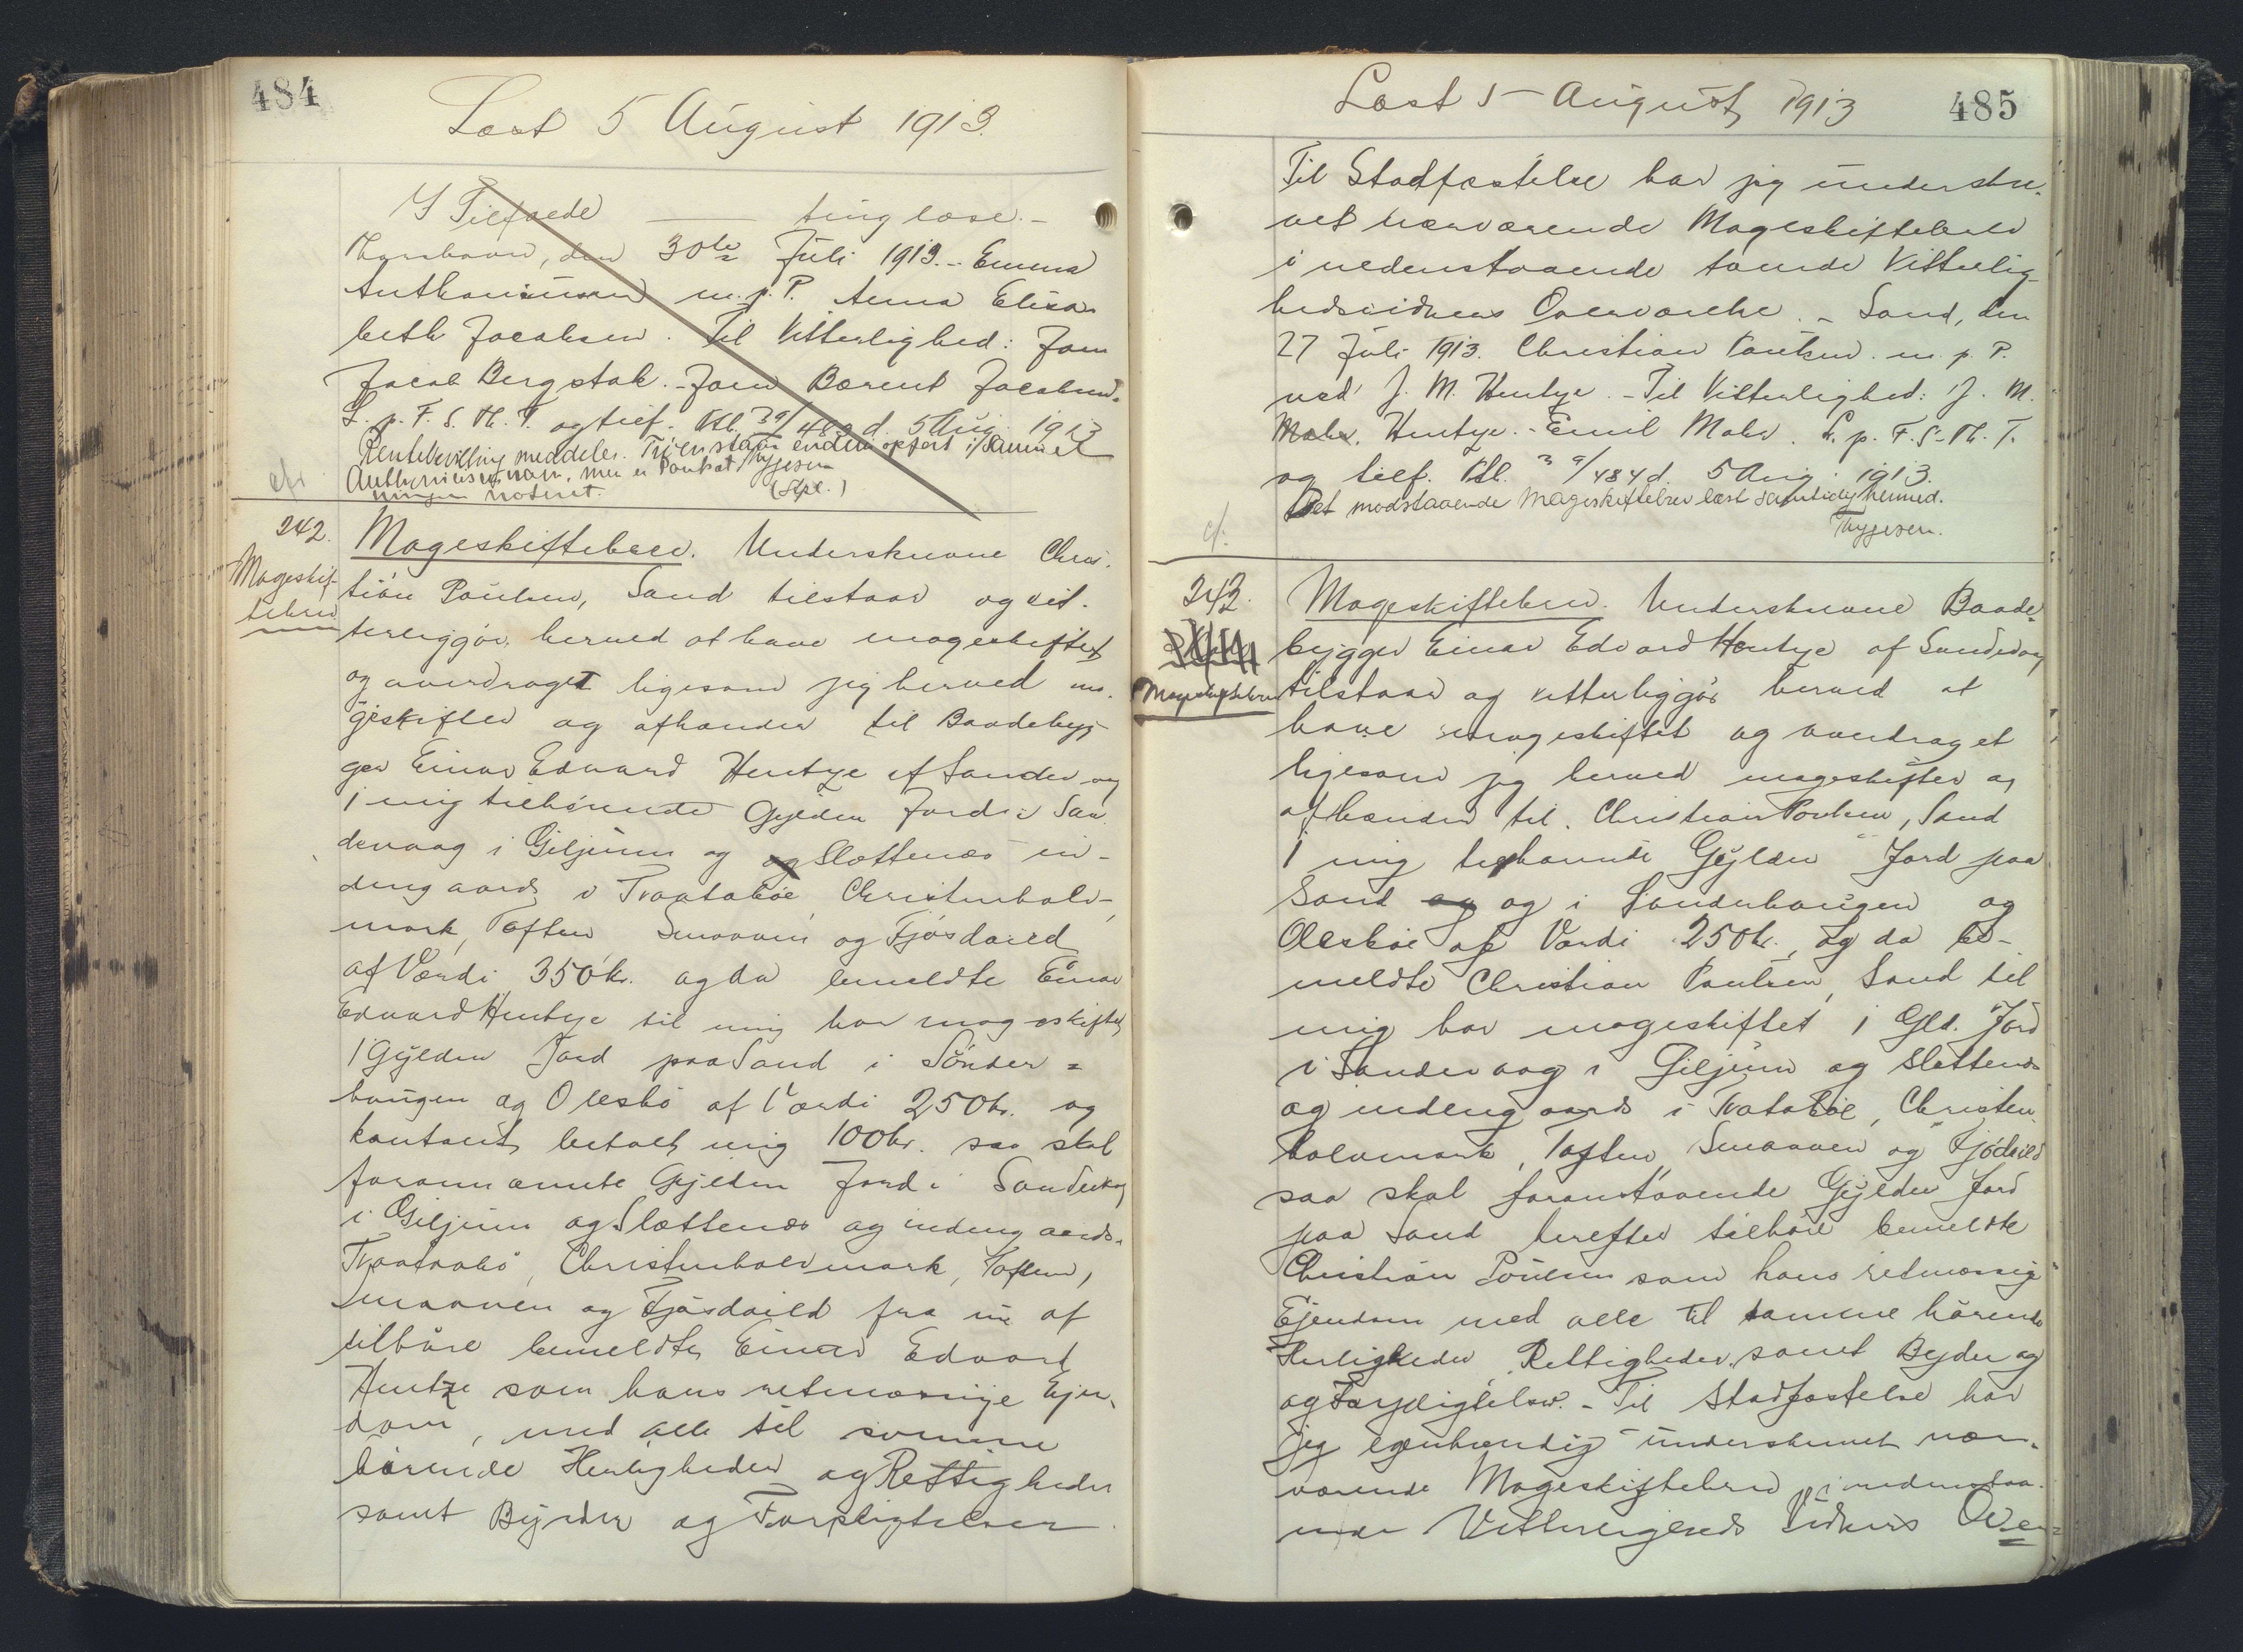 484
Læst 5 August 1913.
I Tilfælde — ting læse. -
Thorshavn, den 30te Juli 1913. - Emma
Anthoniusen m. p. P. Anna Elisa-
beth Jacobsen. Til Vitterlighed: Joen
Jacob Bergstak. - Joen Bærent Jacobsen.
L. p. F. S. Th. T. og tief. Ktl. d. 5 Aug. 1913
Rentebevilling meddeles. Trøenstam endnu opført i Samuel
Anthoniusens navn, men er Pantsat
noteret. Thygesen
cfr.
242.
Mageskif-
tebrev
Mageskiftebrev. Underskrevne Chris-
tian Poulsen, Sand tilstaar og vit-
terliggør herved at have mageskiftet
og overdraget ligesom jeg herved ma-
geskifter og afhænder til Baadebyg-
ger Einar Edvard Hentze af Sandevaag
1 mig tilhørende Gylden Jord i San-
devaag i Giljum og og Slættenæs in-
dengaards i Tvaatabøe, Christenhalv-
mark, Toften Smaaven og Fjøsdaild
af Værdi 350 kr. og da bemeldte Einar
Edvard Hentze til mig har mageskiftet
1 Gylden Jord paa Sand i Sønder=
haugen og Olesbø af Værdi 250 kr. og
kontant betalt mig 100 kr. saa skal
forannævnte Gylden Jord i Sandevaag
i Giljum og Slættenæs og indengaards
Tvaatabø, Christenhalvmark, Toften,
Smaaven og Fjøsdaild fra nu af
tilhøre bemeldte Einar Edvard
Hentze som hans retmæssige Ejen-
dom, med alle til samme
hørende Herligheder og Rettigheder
samt Byrder og Forpligtelser.
485
Læst 5 August 1913
Til Stadfæstelse har jeg underskre-
vet nærværende Mageskiftebrev
i nedenstaaende tvende Vitterlig-
hedsvidners Overværelse. - Sand, den
27 Juli 1913. Christian Poulsen. m. p. P.
ved J. M. Hentze. - Til Vitterlighed: J. M.
Mohr. Hentze. - Emil Mohr. L. p. F. S. Th. T.
og tief. Ktl. 39/484 d. 5 Aug. 1913.
Det modstaaende Mageskiftebrev læst samtidig hermed.
Thygesen.
cf.
243.
Mageskiftebrev
Mageskiftebrev. Underskrevne Baade-
bygger Einar Edvard Hentze af Sandevaag
tilstaar og vitterliggør herved at
have mageskiftet og overdraget
ligesom jeg herved mageskifter og
afhænder til Christian Poulsen, Sand
1 mig tilhørende Gylden Jord paa
Sand og og i Sønderhaugen og
Olesbøe af Værdi 250 kr., og da be-
meldte Christian Poulsen, Sand til
mig har mageskiftet 1 Gld. Jord
i Sandevaag i Giljum og Slettenæs
og indengaards i Tvatabøe, Christen
halvmark, Toften, Smaaven og Fjødaild
saa skal foranstaaende Gylden Jord
paa Sand herefter tilhøre bemeldte
Christian Poulsen som hans retmæssige
Ejendom med alle til samme hørende
Herligheder, Rettigheder, samt Byrder og
og Forpligtelser. - Til Stadfæstelse har
jeg egenhændig underskrevet nær-
værende Mageskiftebrev i nedenstaa-
ende Vitterligheds Vidners Over=